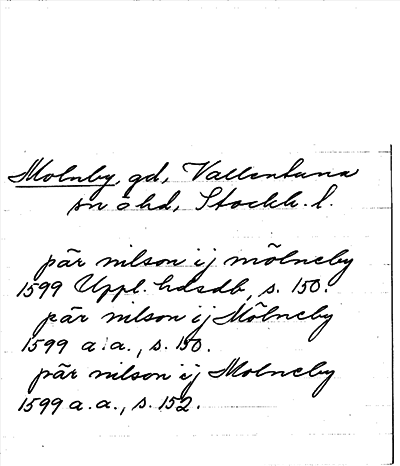 Molnby, gd, Vallentuna
sn o hd, Stockh. l.
pär nilson ij mõlneby
1599 Uppl. hdsdb, s. 150.
pär nilson ij Mõlneby
1599 a.a., s. 150.
pär nilson ij Molneby
1599 a.a., s. 152.